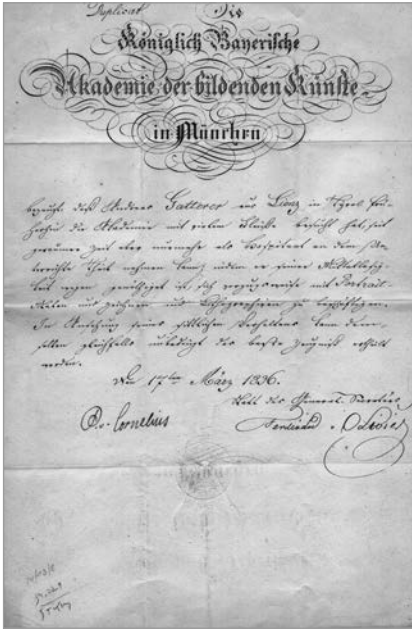 Duplicat
Die
Königlich Bayerische
Akademie der bildenden Künste
in München
bezeugt, daß Andreas Gatterer aus Lienz in Tyrol
die Akademie mit vielem Fleiße besucht hat, seit
Zeit aber nunmehr als Hospitant an dem
Theil nehmen kann, indem er seiner
wegen genöthiget ist, sich vorzugsweise mit Portrait-
Malen und zeichnen und Lithographiren zu beschäftigen.
In Ansehung seines sittlichen Verhaltens kann
gleichfalls unbedingt das beste Zeugniß ertheilt
werden.
Den 17ten März 1836.
Statt des General-Secretärs
Dr. Cornelius
Ferdinand Olivier